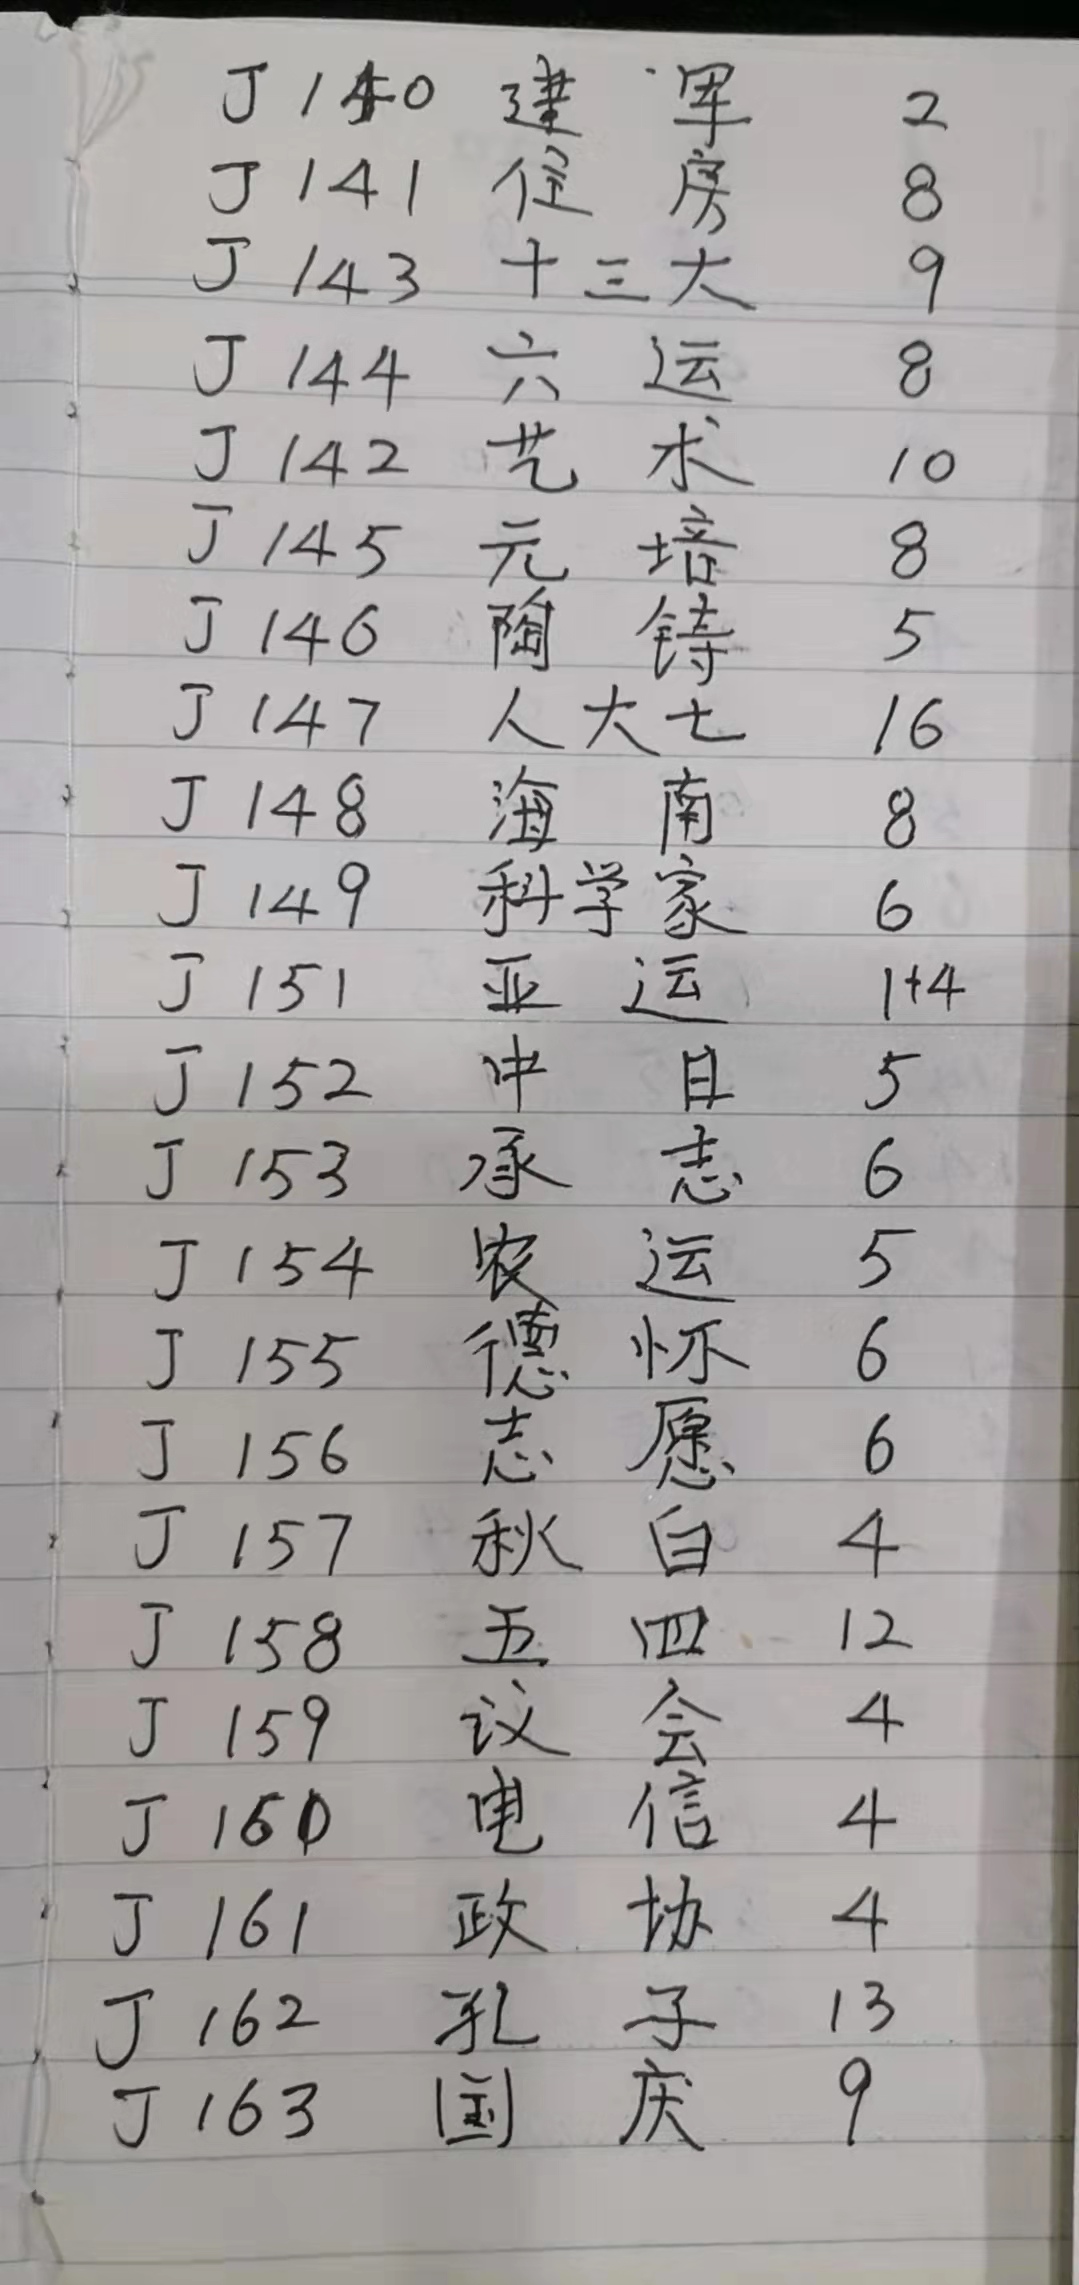 J 140 建军 2
J 141 住房 8
J 143 十三大 9
J 144 六运 8
J 142 艺术 10
J 145 元培 8
J 146 陶铸 5
J 147 人大七 16
J 148 海南 8
J 149 科学家 6
J 151 亚运 1+4
J 152 中日 5
J 153 承志 6
J 154 农运 5
J 155 德怀 6
J 156 志愿 6
J 157 秋白 4
J 158 五四 12
J 159 议会 4
J 160 电信 4
J 161 政协 4
J 162 孔子 13
J 163 国庆 9